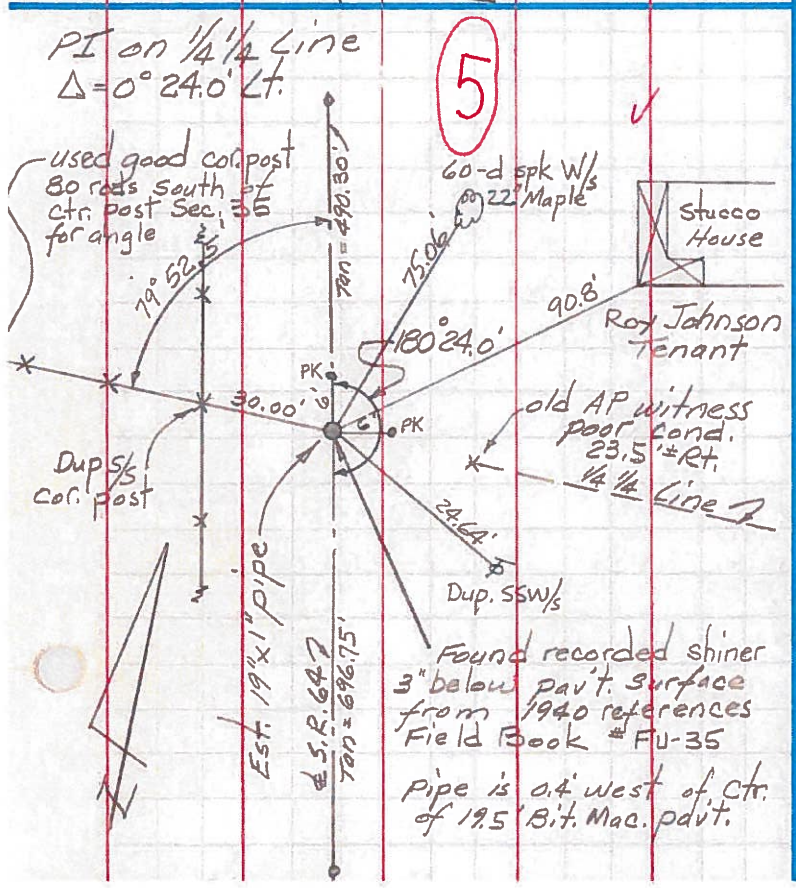 PI on 1/4 1/4 Line
Δ = 0° 24.0' Lt.
5
used good cor. post
80 rods South of
ctr. post Sec. 35
for angle
60-d spk W/s
22" Maple
Stucco
House
Roy Johnson
Tenant
Tan = 490.30'
79° 52.5'
75.06'
90.8'
180° 24.0'
PK
6'
6'
PK
30.00'
old AP witness
poor cond.
23.5' ± Rt.
1/4 1/4 Line
Dup S/s
cor. post
24.64'
Dup. SSW/s
Est. 19" x 1" pipe
℄ S.R. 647
Tan = 696.75'
Found recorded shiner
3" below pav't. surface
from 1940 references
Field Book # FU-35
Pipe is 0.4' west of Ctr.
of 19.5' Bit. Mac. pav't.
N